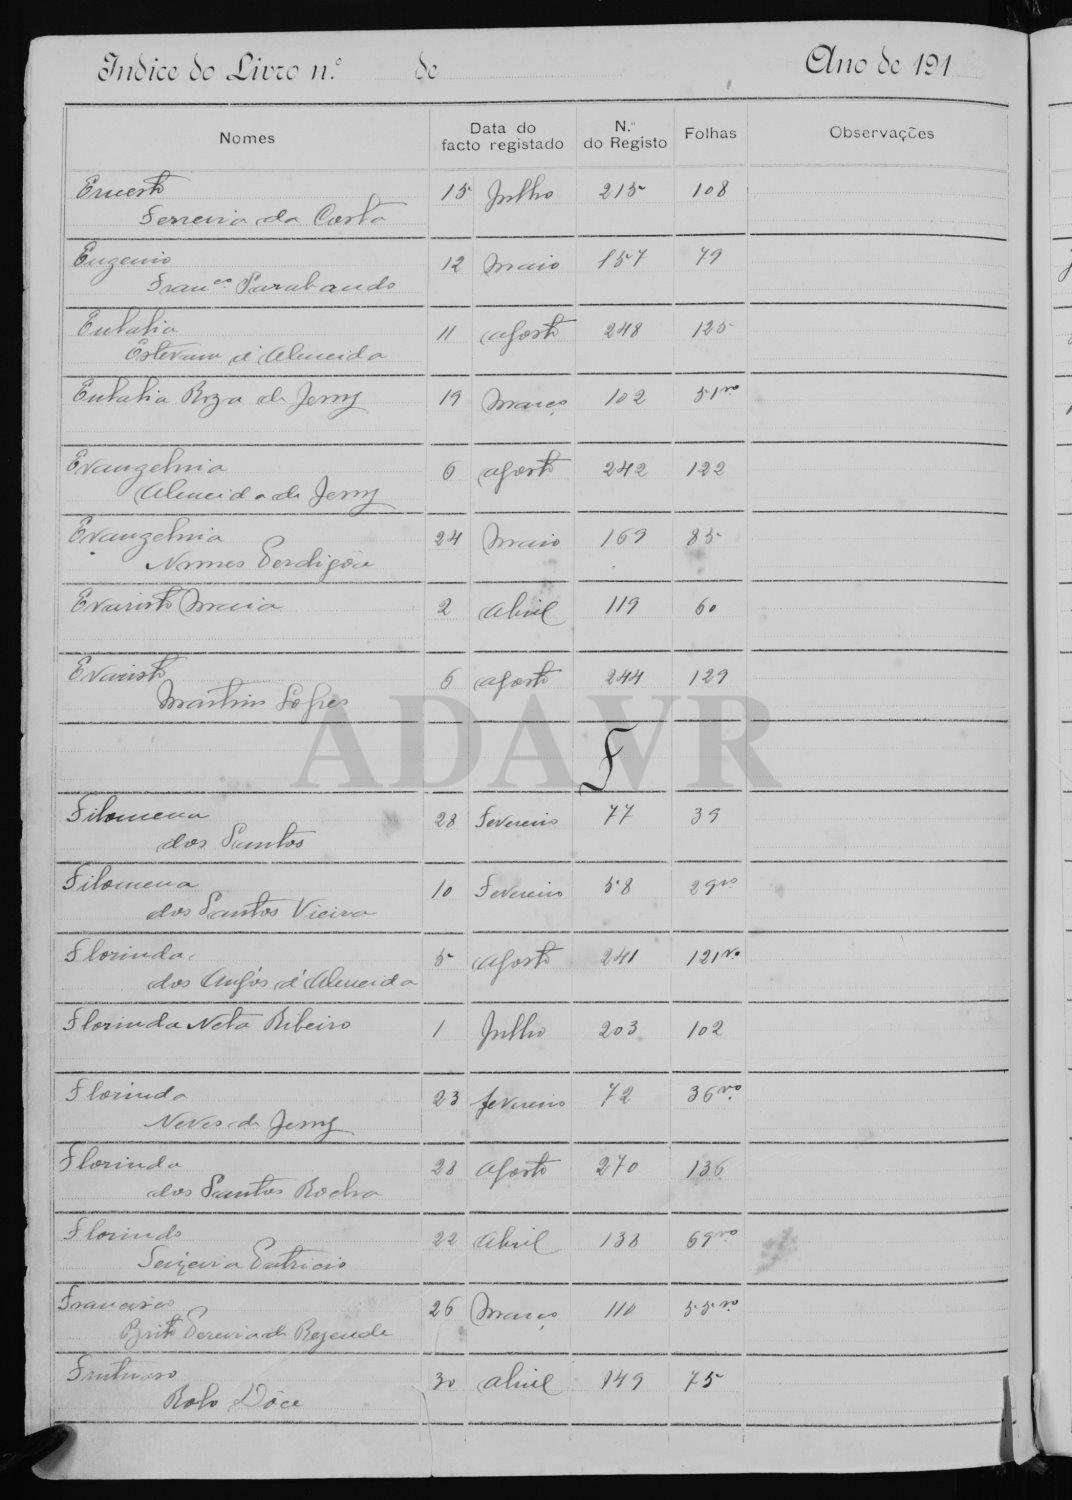 Indice do Livro n.º de Ano de 191
Nomes Data do facto registado N.º do Registo Folhas Observações
Ernesto 15 Julho 215 108
Ferreira da Costa
Eugenio 12 Maio 157 79
Franco. Parabando
Eulalia 11 Agosto 248 125
Estevam d'Almeida
Eulalia Roza de Jesus 19 Março 102 51vo.
Evangelina 6 Agosto 242 122
Almeida de Jesus
Evangelina 24 Maio 169 85
Nunes Perdigão
Evaristo Maria 2 Abril 119 60
Evaristo 6 Agosto 244 129
Martins Lopes
ADAVR
F
Filomena 28 Fevereiro 77 39
dos Santos
Filomena 10 Fevereiro 58 29vo
dos Santos Vieira
Florinda 5 Agosto 241 121vo.
dos Anjos d'Almeida
Florinda Neta Ribeiro 1 Julho 203 102
Florinda 23 fevereiro 72 36vo.
Neves de Jesus
Florinda 28 Agosto 270 136
dos Santos Rocha
Florindo 22 Abril 138 69vo
Teixeira Patricio
Francisco 26 Março 110 55vo.
Brito Pereira de Rezende
Frutuoso 30 Abril 149 75
Rolo Dôce